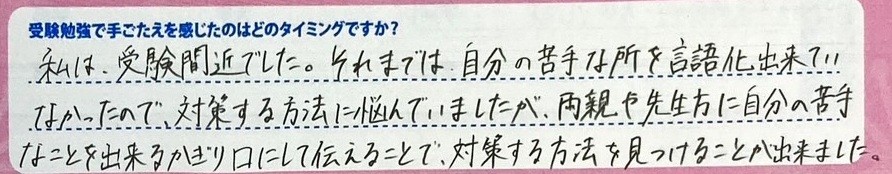 受験勉強で手ごたえを感じたのはどのタイミングですか?
私は、受験間近でした。それまでは、自分の苦手な所を言語化出来てい
なかったので、対策する方法に悩んでいましたが、両親や先生方に自分の苦手
なことを出来るかぎり口にして伝えることで、対策する方法を見つけることが出来ました。